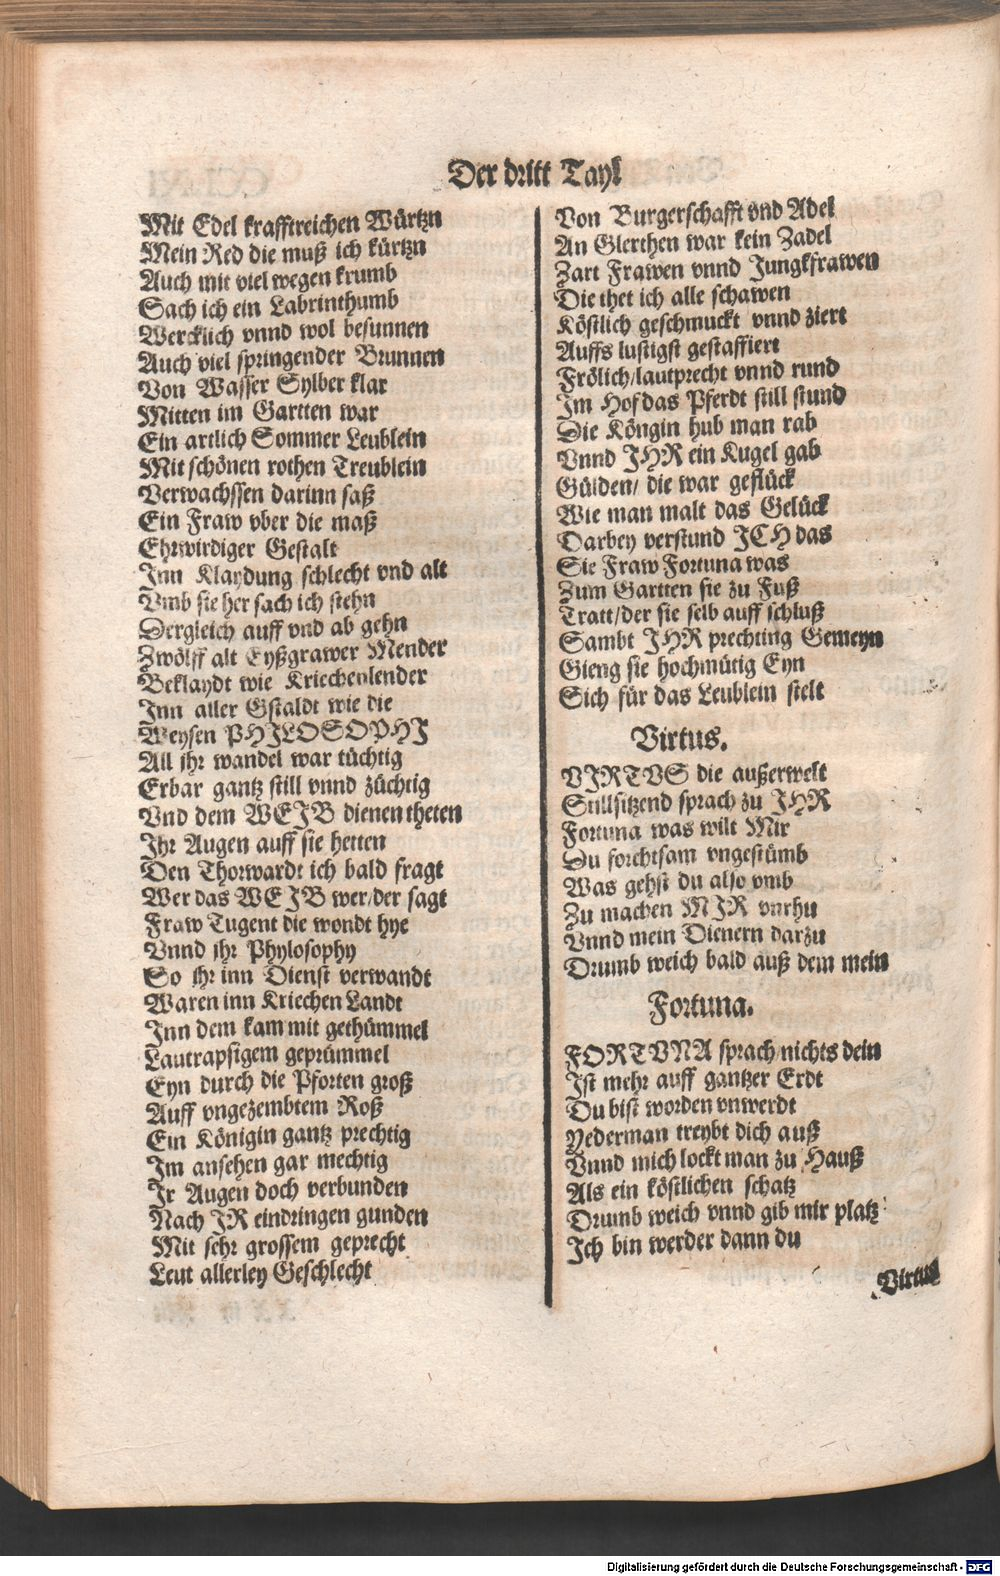 Der dritt Tayl
Mit Edel krafftreichen Würtzn
Mein Red die muß ich kürtzn
Auch mit viel wegen krumb
Sach ich ein Labrinthumb
Wercklich vnnd wol besunnen
Auch viel springender Brunnen
Von Wasser Sylber klar
Mitten im Gartten war
Ein artlich Sommer Leublein
Mit schönen rothen Treublein
Verwachssen darinn saß
Ein Fraw vber die maß
Ehrwirdiger Gestalt
Inn Klaydung schlecht vnd alt
Vmb sie her sach ich stehn
Dergleich auff vnd ab gehn
Zwölff alt Eyßgrawer Mender
Beklaydt wie Kriechenlender
Inn aller Gstaldt wie die
Weysen PHILOSOPHI
All jhr wandel war tüchtig
Erbar gantz still vnnd züchtig
Vnd dem WEIB dienen theten
Ihr Augen auff sie hetten
Den Thorwardt ich bald fragt
Wer das WEIB wer/der sagt
Fraw Tugent die wondt hye
Vnnd jhr Phylosophy
So jhr inn Dienst verwandt
Waren inn Kriechen Landt
Inn dem kam mit gethümmel
Lautrapsigem geprümmel
Eyn durch die Pforten groß
Auff vngezembtem Roß
Ein Königin gantz prechtig
Im ansehen gar mechtig
Ir Augen doch verbunden
Nach IR eindringen gunden
Mit sehr grossem geprecht
Leut allerley Geschlecht
Von Burgerschafft vnd Adel
An Glerthen war kein Zadel
Zart Frawen vnnd Jungkfrawen
Die thet ich alle schawen
Köstlich geschmuckt vnnd ziert
Auffs lustigst gestaffiert
Frölich/lautprecht vnnd rund
Im Hof das Pferdt still stund
Die Köngin hub man rab
Vnnd IHR ein Kugel gab
Gülden/ die war geflück
Wie man malt das Gelück
Darbey verstund ICH das
Sie Fraw Fortuna was
Zum Gartten sie zu Fuß
Tratt/der sie selb auff schluß
Sambt IHR prechting Gemeyn
Gieng sie hochmütig Eyn
Sich für das Leublein stelt
Virtus.
VIRTVS die außerwelt
Stillsitzend sprach zu IHR
Fortuna was wilt Mir
Du forchtsam vngestümb
Was gehst du also vmb
Zu machen MIR vnrhu
Vnnd mein Dienern darzu
Drumb weich bald auß dem mein
Fortuna.
FORTVNA sprach/nichts dein
Ist mehr auff gantzer Erdt
Du bist worden vnwerdt
Yederman treybt dich auß
Vnnd mich lockt man zu Hauß
Als ein köstlichen schatz
Drumb weich vnnd gib mir platz
Ich bin werder dann du
Virtus
Digitalisierung gefördert durch die Deutsche Forschungsgemeinschaft - DFG